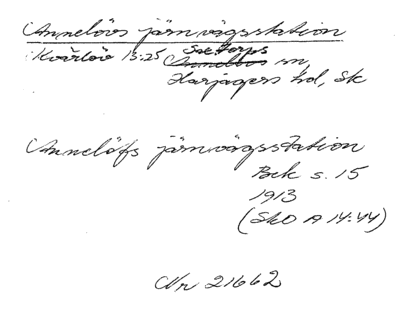 Annelövs järnvägsstation
Kvärlöv 13:25 Saxtorps Annelövs sn,
Harjagers hd, Sk
Annelöfs järnvägsstation
Bek s. 15
1913
(SkO A 14:44)
Nr 21662